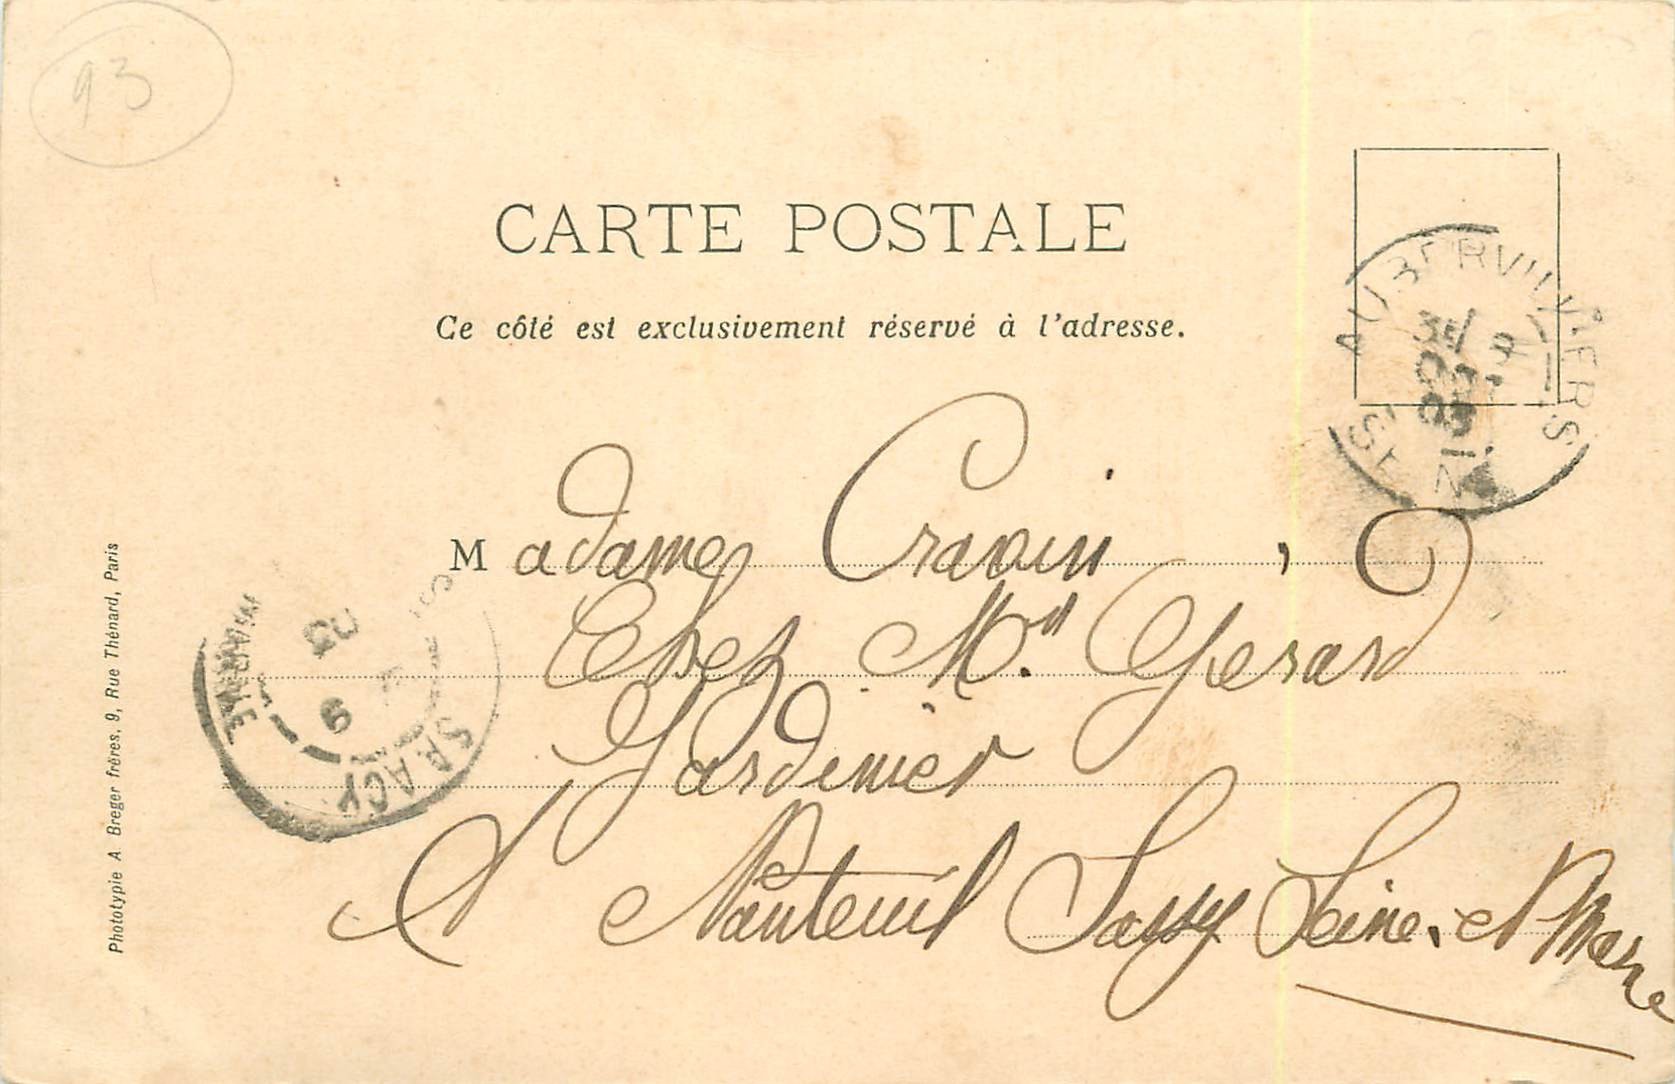 93
CARTE POSTALE
Ce côté est exclusivement réservé à l'adresse.
AUBERVILLIERS
SEINE
03
Madame Cravin,
Chez Mr. Gérard
Jardinier
A Nanteuil Sassy Seine et Marne
SAACY
MARNE
9
03
Phototypie A. Breger frères, 9, Rue Thénard, Paris